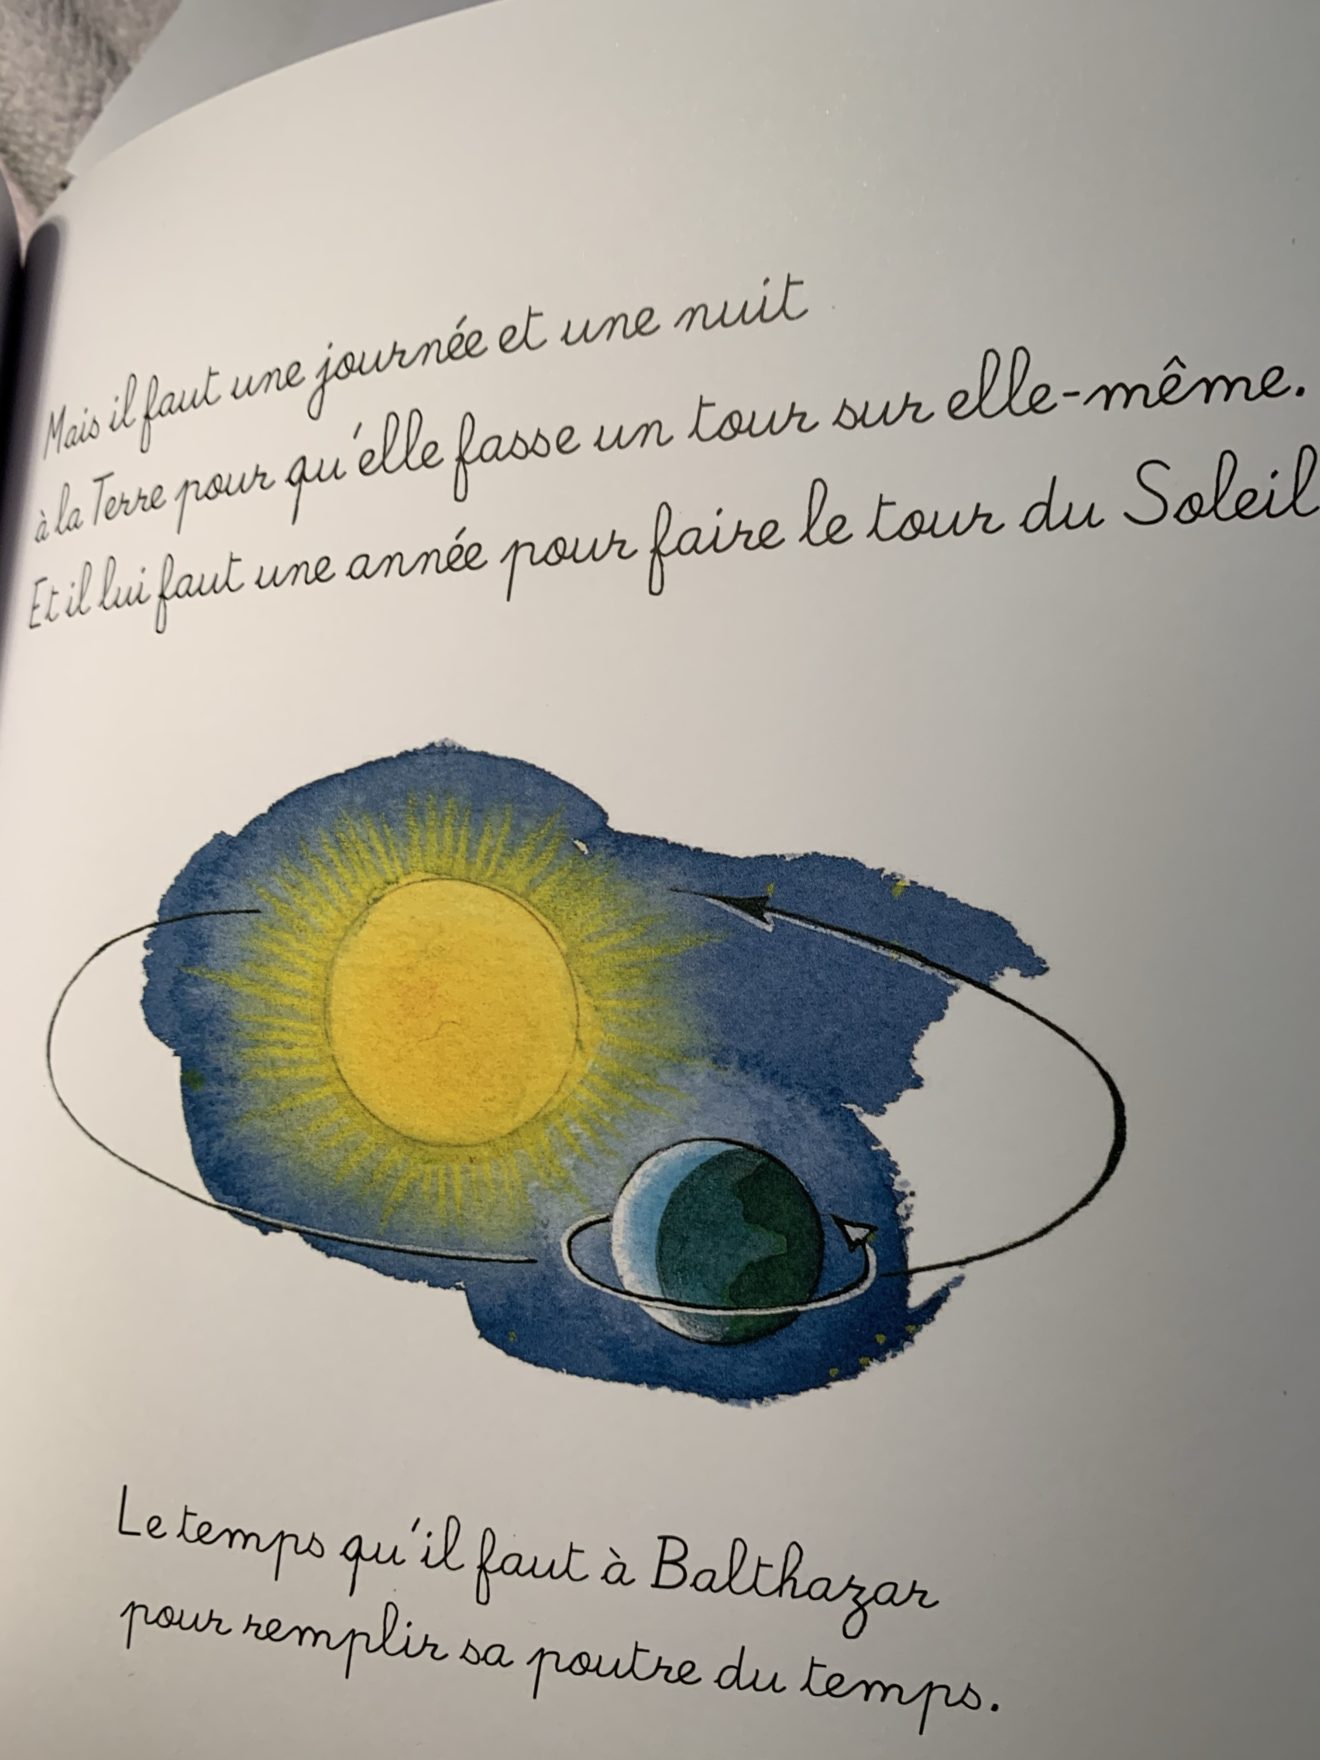 Mais il faut une journée et une nuit
à la Terre pour qu'elle fasse un tour sur elle-même.
Et il lui faut une année pour faire le tour du Soleil
Le temps qu'il faut à Balthazar
pour remplir sa poutre du temps.